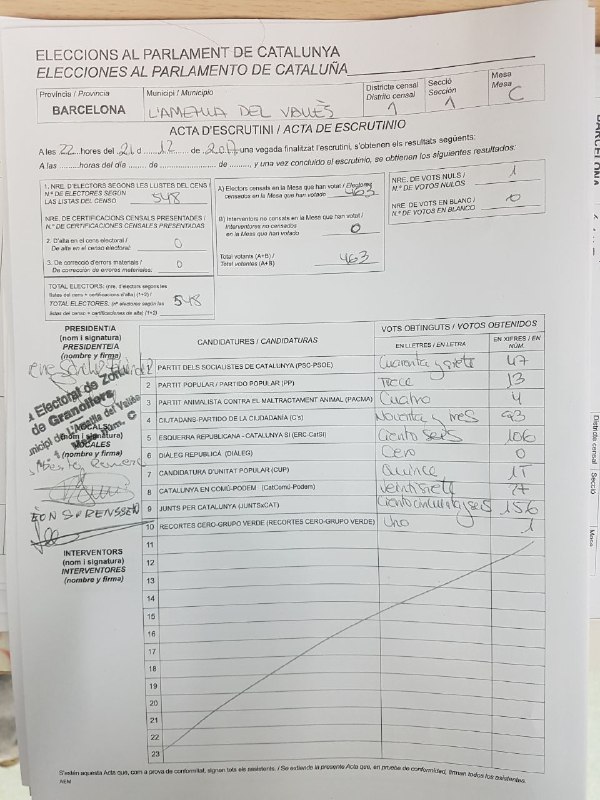 ELECCIONS AL PARLAMENT DE CATALUNYA
ELECCIONES AL PARLAMENTO DE CATALUÑA
Província / Provincia
BARCELONA
Municipi / Municipio
L'AMETLLA DEL VALLÈS
Districte censal
Distrito censal
1
Secció
Sección
1
Mesa
Mesa
C
ACTA D'ESCRUTINI / ACTA DE ESCRUTINIO
A les 22 hores del 21 d 12 de 2017, una vegada finalitzat l'escrutini, s'obtenen els resultats següents:
A las ........ horas del día ........ de ........ de ........, y una vez concluido el escrutinio, se obtienen los siguientes resultados:
1. NRE. D'ELECTORS SEGONS LES LLISTES DEL CENS /
N.º DE ELECTORES SEGÚN
LAS LISTAS DEL CENSO
548
NRE. DE CERTIFICACIONS CENSALS PRESENTADES /
N.º DE CERTIFICACIONES CENSALES PRESENTADAS
2. D'alta en el cens electoral /
De alta en el censo electoral:
0
3. De correcció d'errors materials /
De corrección de errores materiales:
0
TOTAL ELECTORS: (nre. d'electors segons les
llistes del cens + certificacions d'alta) (1+2) /
TOTAL ELECTORES: (nº electores según las
listas del censo + certificaciones de alta) (1+2)
548
A) Electors censats en la Mesa que han votat / Electores
censados en la Mesa que han votado
463
B) Interventors no censats en la Mesa que han votat /
Interventores no censados
en la Mesa que han votado
0
Total votants (A+B) /
Total votantes (A+B)
463
NRE. DE VOTS NULS /
N.º DE VOTOS NULOS
1
NRE. DE VOTS EN BLANC /
N.º DE VOTOS EN BLANCO
0
PRESIDENT/A
(nom i signatura)
PRESIDENTE/A
(nombre y firma)
Electoral de Zona
de Granollers
Municipi de L'Ametlla del Vallès
Núm. C
VOCALS
(nom i signatura)
VOCALES
(nombre y firma)
INTERVENTORS
(nom i signatura)
INTERVENTORES
(nombre y firma)
CANDIDATURES / CANDIDATURAS
VOTS OBTINGUTS / VOTOS OBTENIDOS
EN LLETRES / EN LETRA
EN XIFRES / EN NÚM.
1 PARTIT DELS SOCIALISTES DE CATALUNYA (PSC-PSOE) Cuarenta y siete 47
2 PARTIT POPULAR / PARTIDO POPULAR (PP) Trece 13
3 PARTIT ANIMALISTA CONTRA EL MALTRACTAMENT ANIMAL (PACMA) Cuatro 4
4 CIUTADANS-PARTIDO DE LA CIUDADANÍA (C's) Noventa y tres 93
5 ESQUERRA REPUBLICANA - CATALUNYA SÍ (ERC-CatSí) Ciento seis 106
6 DIÀLEG REPUBLICÀ (DIÀLEG) Cero 0
7 CANDIDATURA D'UNITAT POPULAR (CUP) Quince 15
8 CATALUNYA EN COMÚ-PODEM (CatComú-Podem) Veintisiete 27
9 JUNTS PER CATALUNYA (JUNTSxCAT) Ciento cincuenta y seis 156
10 RECORTES CERO-GRUPO VERDE (RECORTES CERO-GRUPO VERDE) Uno 1
11
12
13
14
15
16
17
18
19
20
21
22
23
S'estén aquesta Acta que, com a prova de conformitat, signen tots els assistents. / Se extiende la presente Acta que, en prueba de conformidad, firman todos los asistentes.
BARCELONA
Districte censal
Secció
Mesa